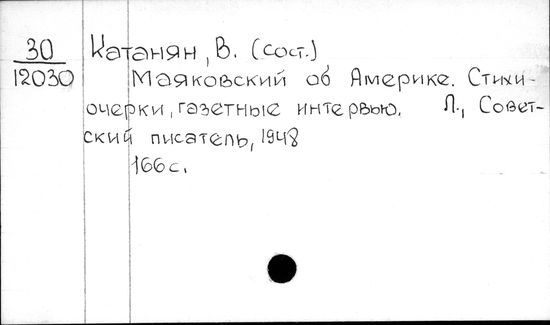 30 Катанян, В. (сост.)
12030 Маяковский об Америке. Стихи-
очерки, газетные интервью. Л., Совет-
ский писатель, 1948
166 с.